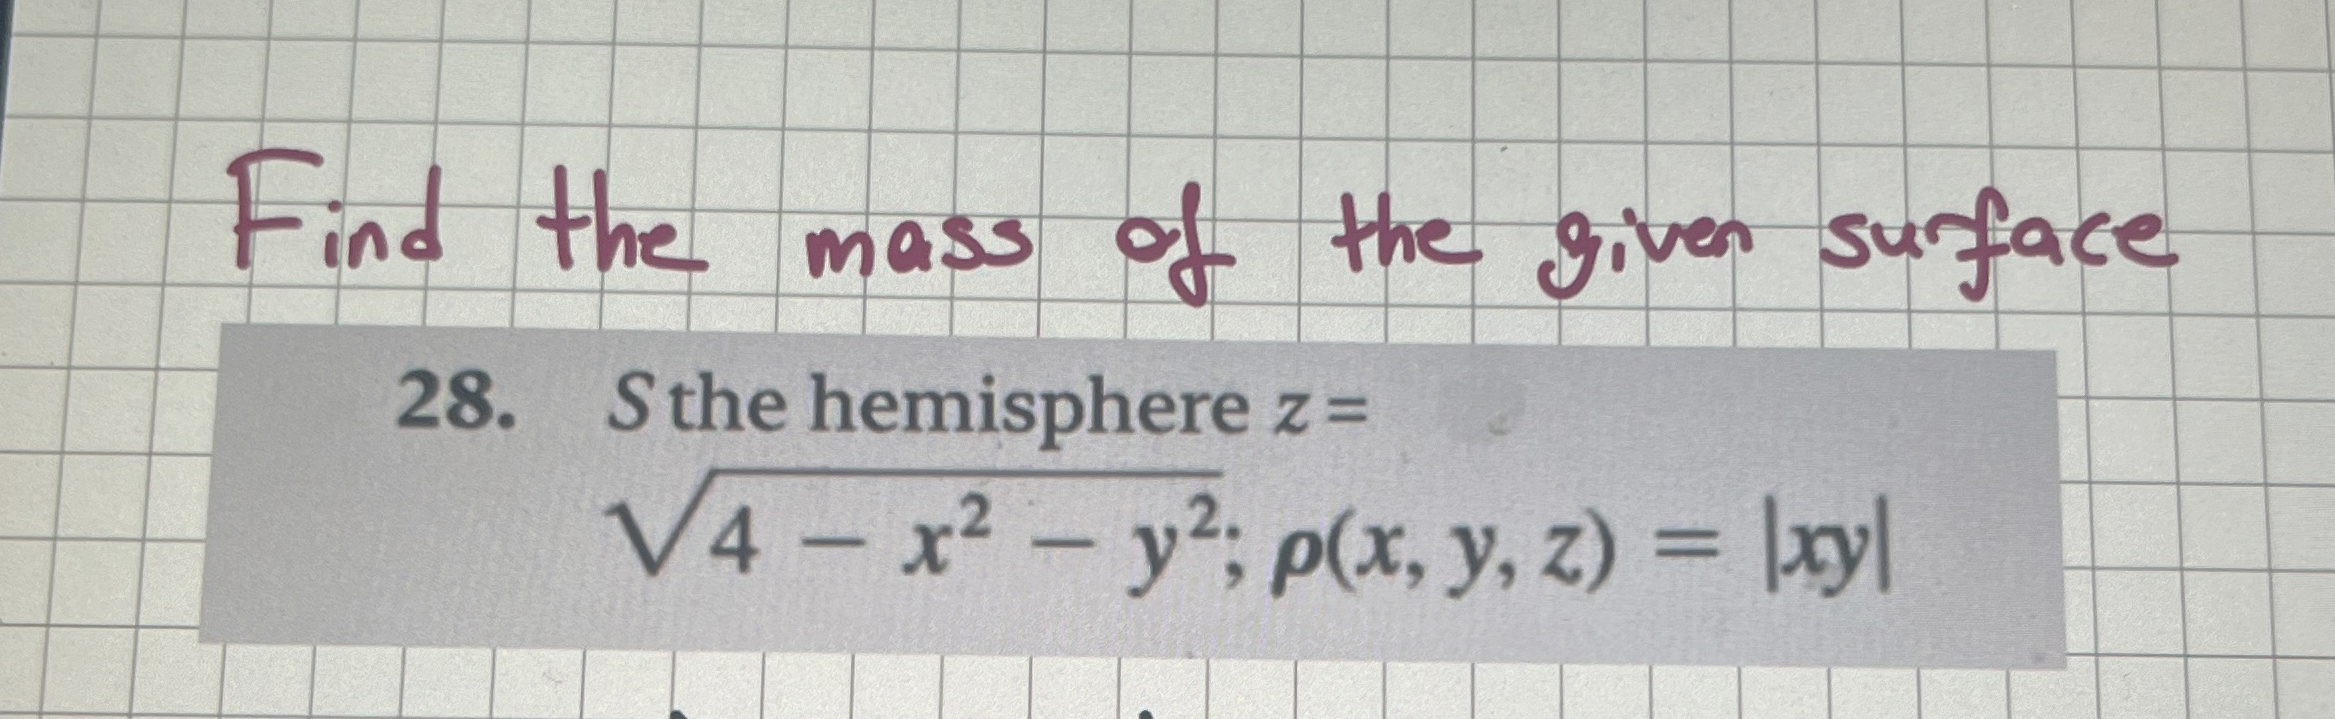 Find the mass of the given surface
28. S the hemisphere z =
√4 − x² − y²; ρ(x, y, z) = |xy|